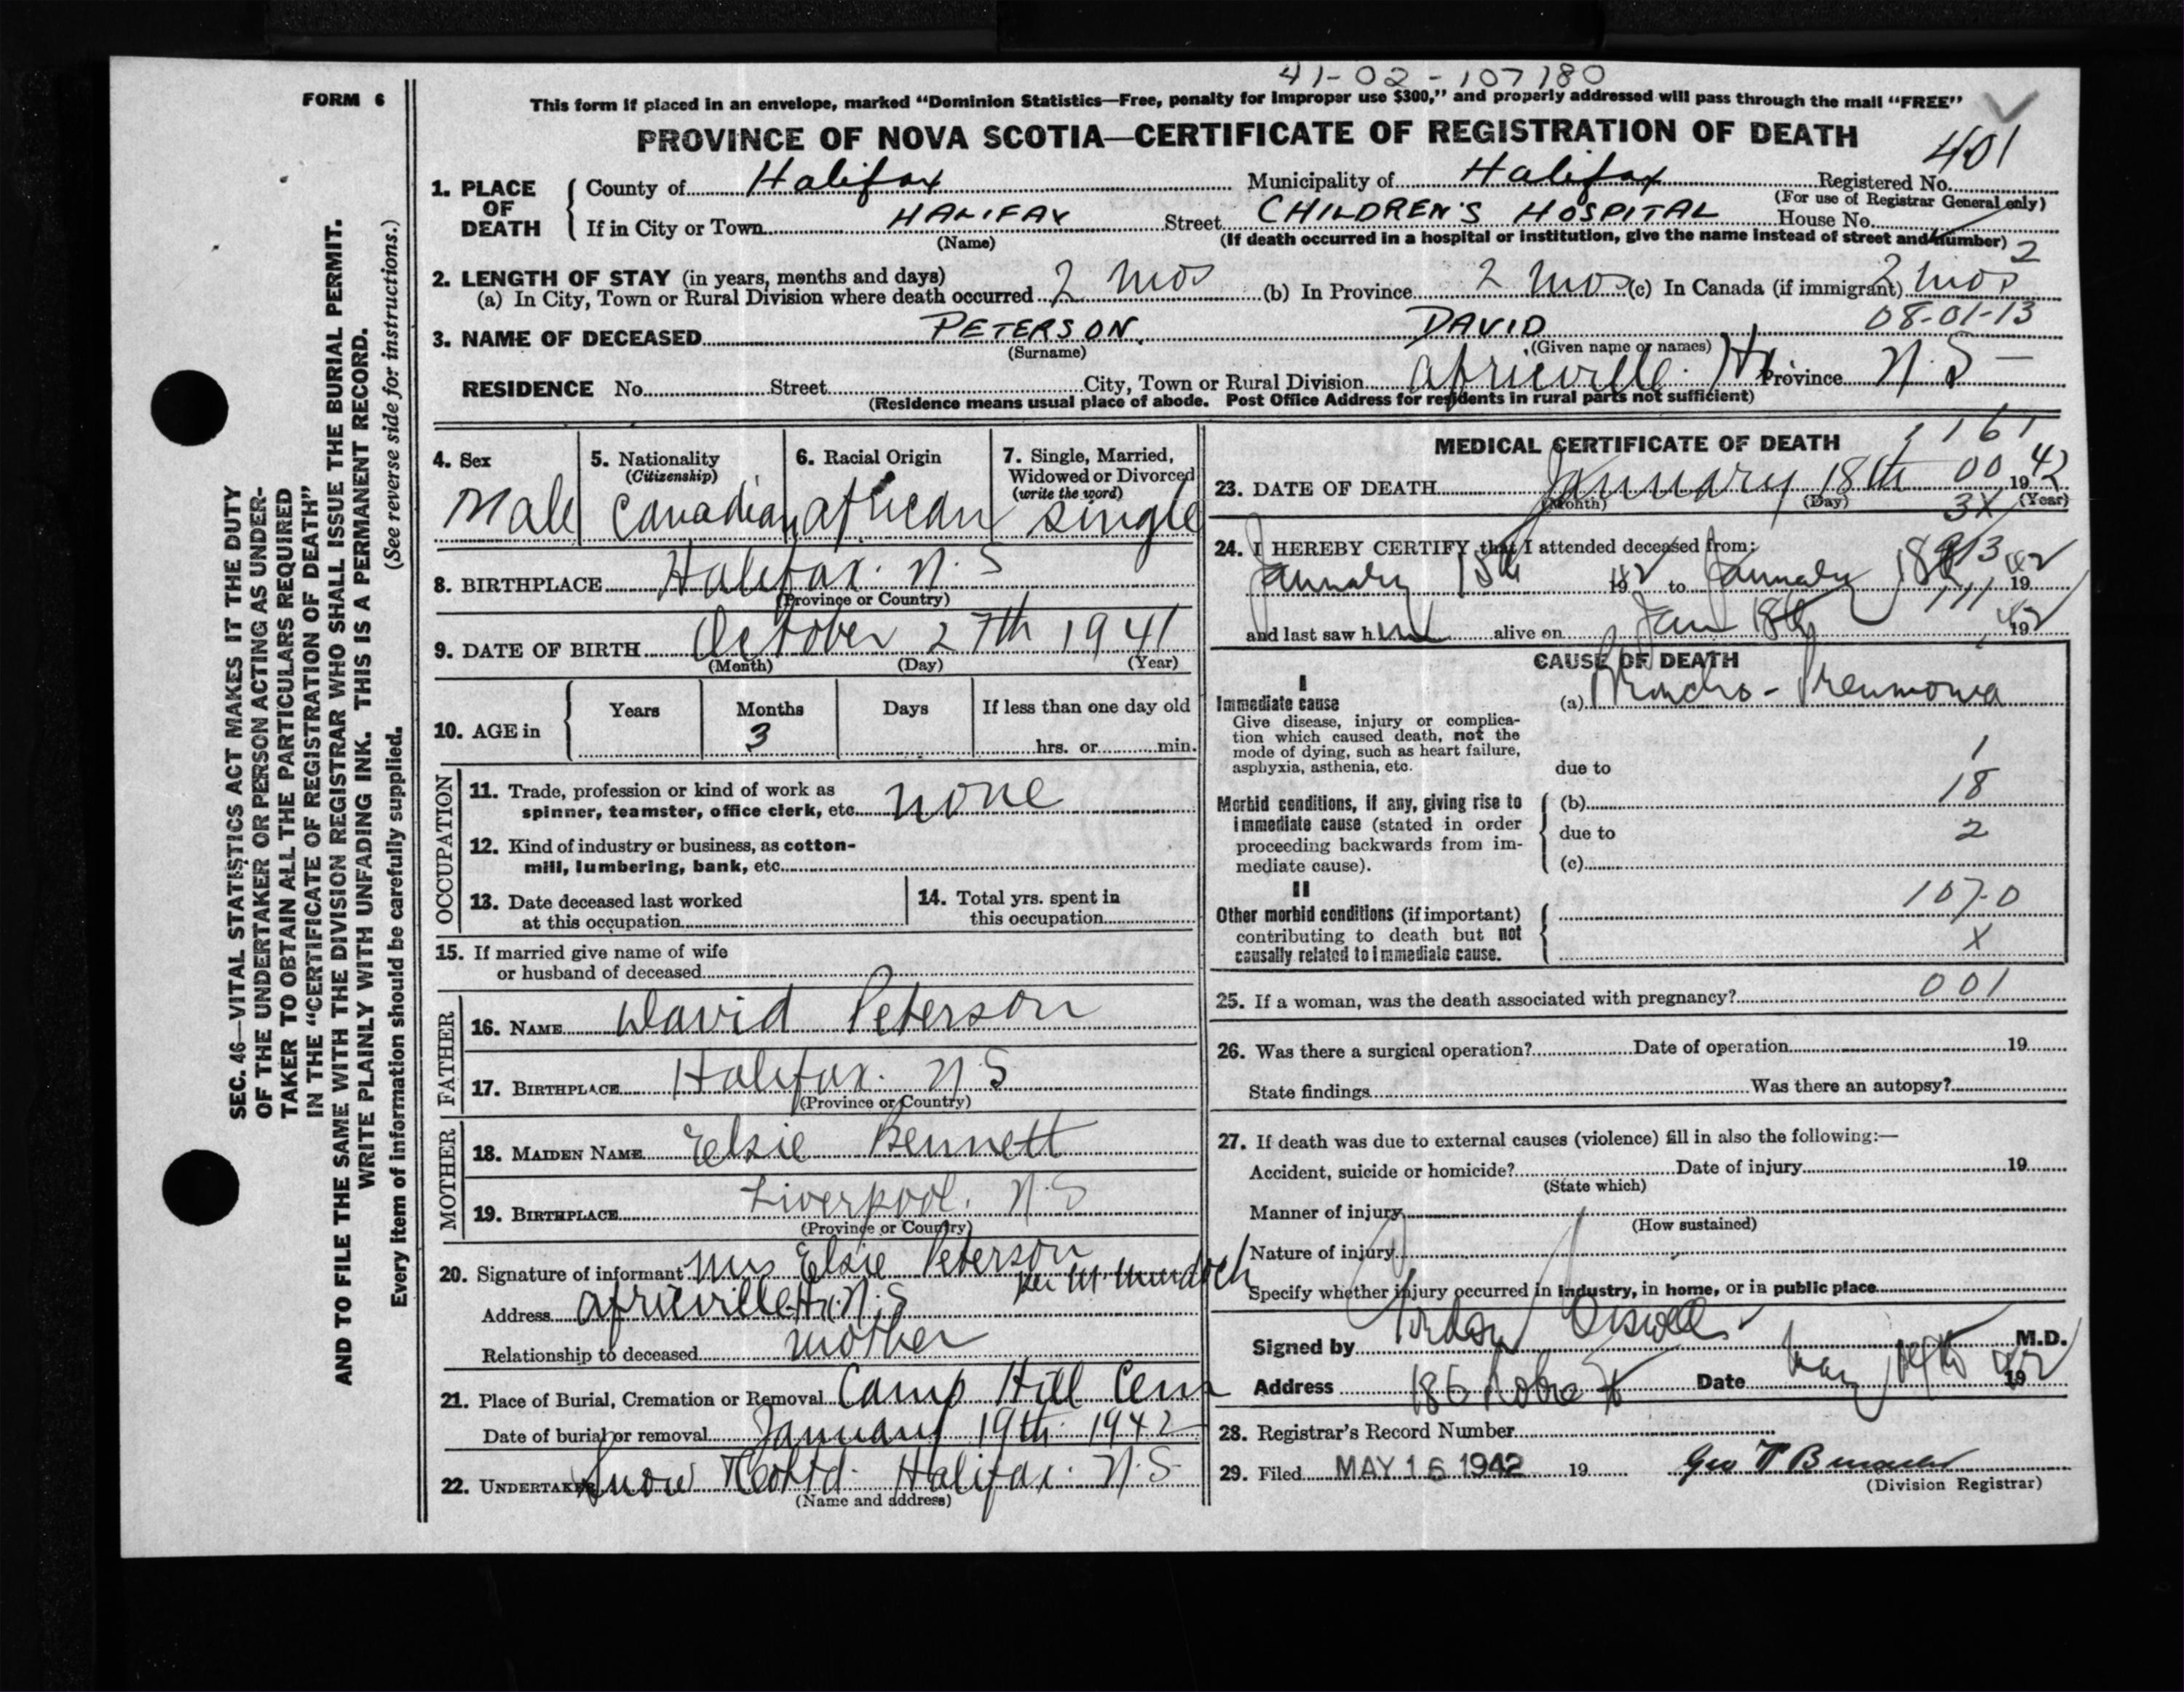 41-02-107180
FORM 6
This form if placed in an envelope, marked "Dominion Statistics—Free, penalty for improper use $300," and properly addressed will pass through the mail "FREE"
PROVINCE OF NOVA SCOTIA—CERTIFICATE OF REGISTRATION OF DEATH
401
1. PLACE OF DEATH
County of Halifax Municipality of Halifax Registered No.
(For use of Registrar General only)
If in City or Town HALIFAX Street CHILDREN'S HOSPITAL House No.
(Name) (If death occurred in a hospital or institution, give the name instead of street and number)
2
2. LENGTH OF STAY (in years, months and days)
(a) In City, Town or Rural Division where death occurred 2 mos (b) In Province 2 mos (c) In Canada (if immigrant) 2 mos
08-01-13
3. NAME OF DECEASED PETERSON DAVID
(Surname) (Given name or names)
RESIDENCE No. Street City, Town or Rural Division Africville. Hx Province N.S-
(Residence means usual place of abode. Post Office Address for residents in rural parts not sufficient)
SEC. 46—VITAL STATISTICS ACT MAKES IT THE DUTY
OF THE UNDERTAKER OR PERSON ACTING AS UNDER-
TAKER TO OBTAIN ALL THE PARTICULARS REQUIRED
IN THE "CERTIFICATE OF REGISTRATION OF DEATH"
AND TO FILE THE SAME WITH THE DIVISION REGISTRAR WHO SHALL ISSUE THE BURIAL PERMIT.
WRITE PLAINLY WITH UNFADING INK. THIS IS A PERMANENT RECORD.
(See reverse side for instructions.)
Every item of information should be carefully supplied.
4. Sex
Male
5. Nationality
(Citizenship)
Canadian
6. Racial Origin
African
7. Single, Married,
Widowed or Divorced
(write the word)
Single
8. BIRTHPLACE Halifax. N.S
(Province or Country)
9. DATE OF BIRTH October 27th 1941
(Month) (Day) (Year)
10. AGE in
Years Months Days If less than one day old
3 hrs. or min.
OCCUPATION
11. Trade, profession or kind of work as
spinner, teamster, office clerk, etc. none
12. Kind of industry or business, as cotton-
mill, lumbering, bank, etc.
13. Date deceased last worked
at this occupation
14. Total yrs. spent in
this occupation
15. If married give name of wife
or husband of deceased
FATHER
16. NAME David Peterson
17. BIRTHPLACE Halifax. N.S
(Province or Country)
MOTHER
18. MAIDEN NAME Elsie Bennett
19. BIRTHPLACE Liverpool. N.S
(Province or Country)
20. Signature of informant Mrs Elsie Peterson
Per M. Murdoch
Address Africville Hx. N.S
Relationship to deceased mother
21. Place of Burial, Cremation or Removal Camp Hill Cem
Date of burial or removal January 19th 1942
22. UNDERTAKER Snow & Co Ltd. Halifax. N.S
(Name and address)
MEDICAL CERTIFICATE OF DEATH
1161
23. DATE OF DEATH January 18th 00 1942
(Month) (Day) (Year)
3X
24. I HEREBY CERTIFY that I attended deceased from:
January 15th 1942 to January 18th 1942
and last saw him alive on Jan 18th 1942
CAUSE OF DEATH
I
Immediate cause
Give disease, injury or complica-
tion which caused death, not the
mode of dying, such as heart failure,
asphyxia, asthenia, etc.
(a) Broncho-Pneumonia
1
due to
18
Morbid conditions, if any, giving rise to
immediate cause (stated in order
proceeding backwards from im-
mediate cause).
(b)
due to
2
(c)
II
Other morbid conditions (if important)
contributing to death but not
causally related to immediate cause.
107-0
X
25. If a woman, was the death associated with pregnancy? 001
26. Was there a surgical operation? Date of operation 19
State findings Was there an autopsy?
27. If death was due to external causes (violence) fill in also the following:—
Accident, suicide or homicide? Date of injury 19
(State which)
Manner of injury
(How sustained)
Nature of injury
Specify whether injury occurred in Industry, in home, or in public place
Signed by M.D.
Address 186 Date May 14th 1942
28. Registrar's Record Number
29. Filed MAY 16 1942 19
(Division Registrar)